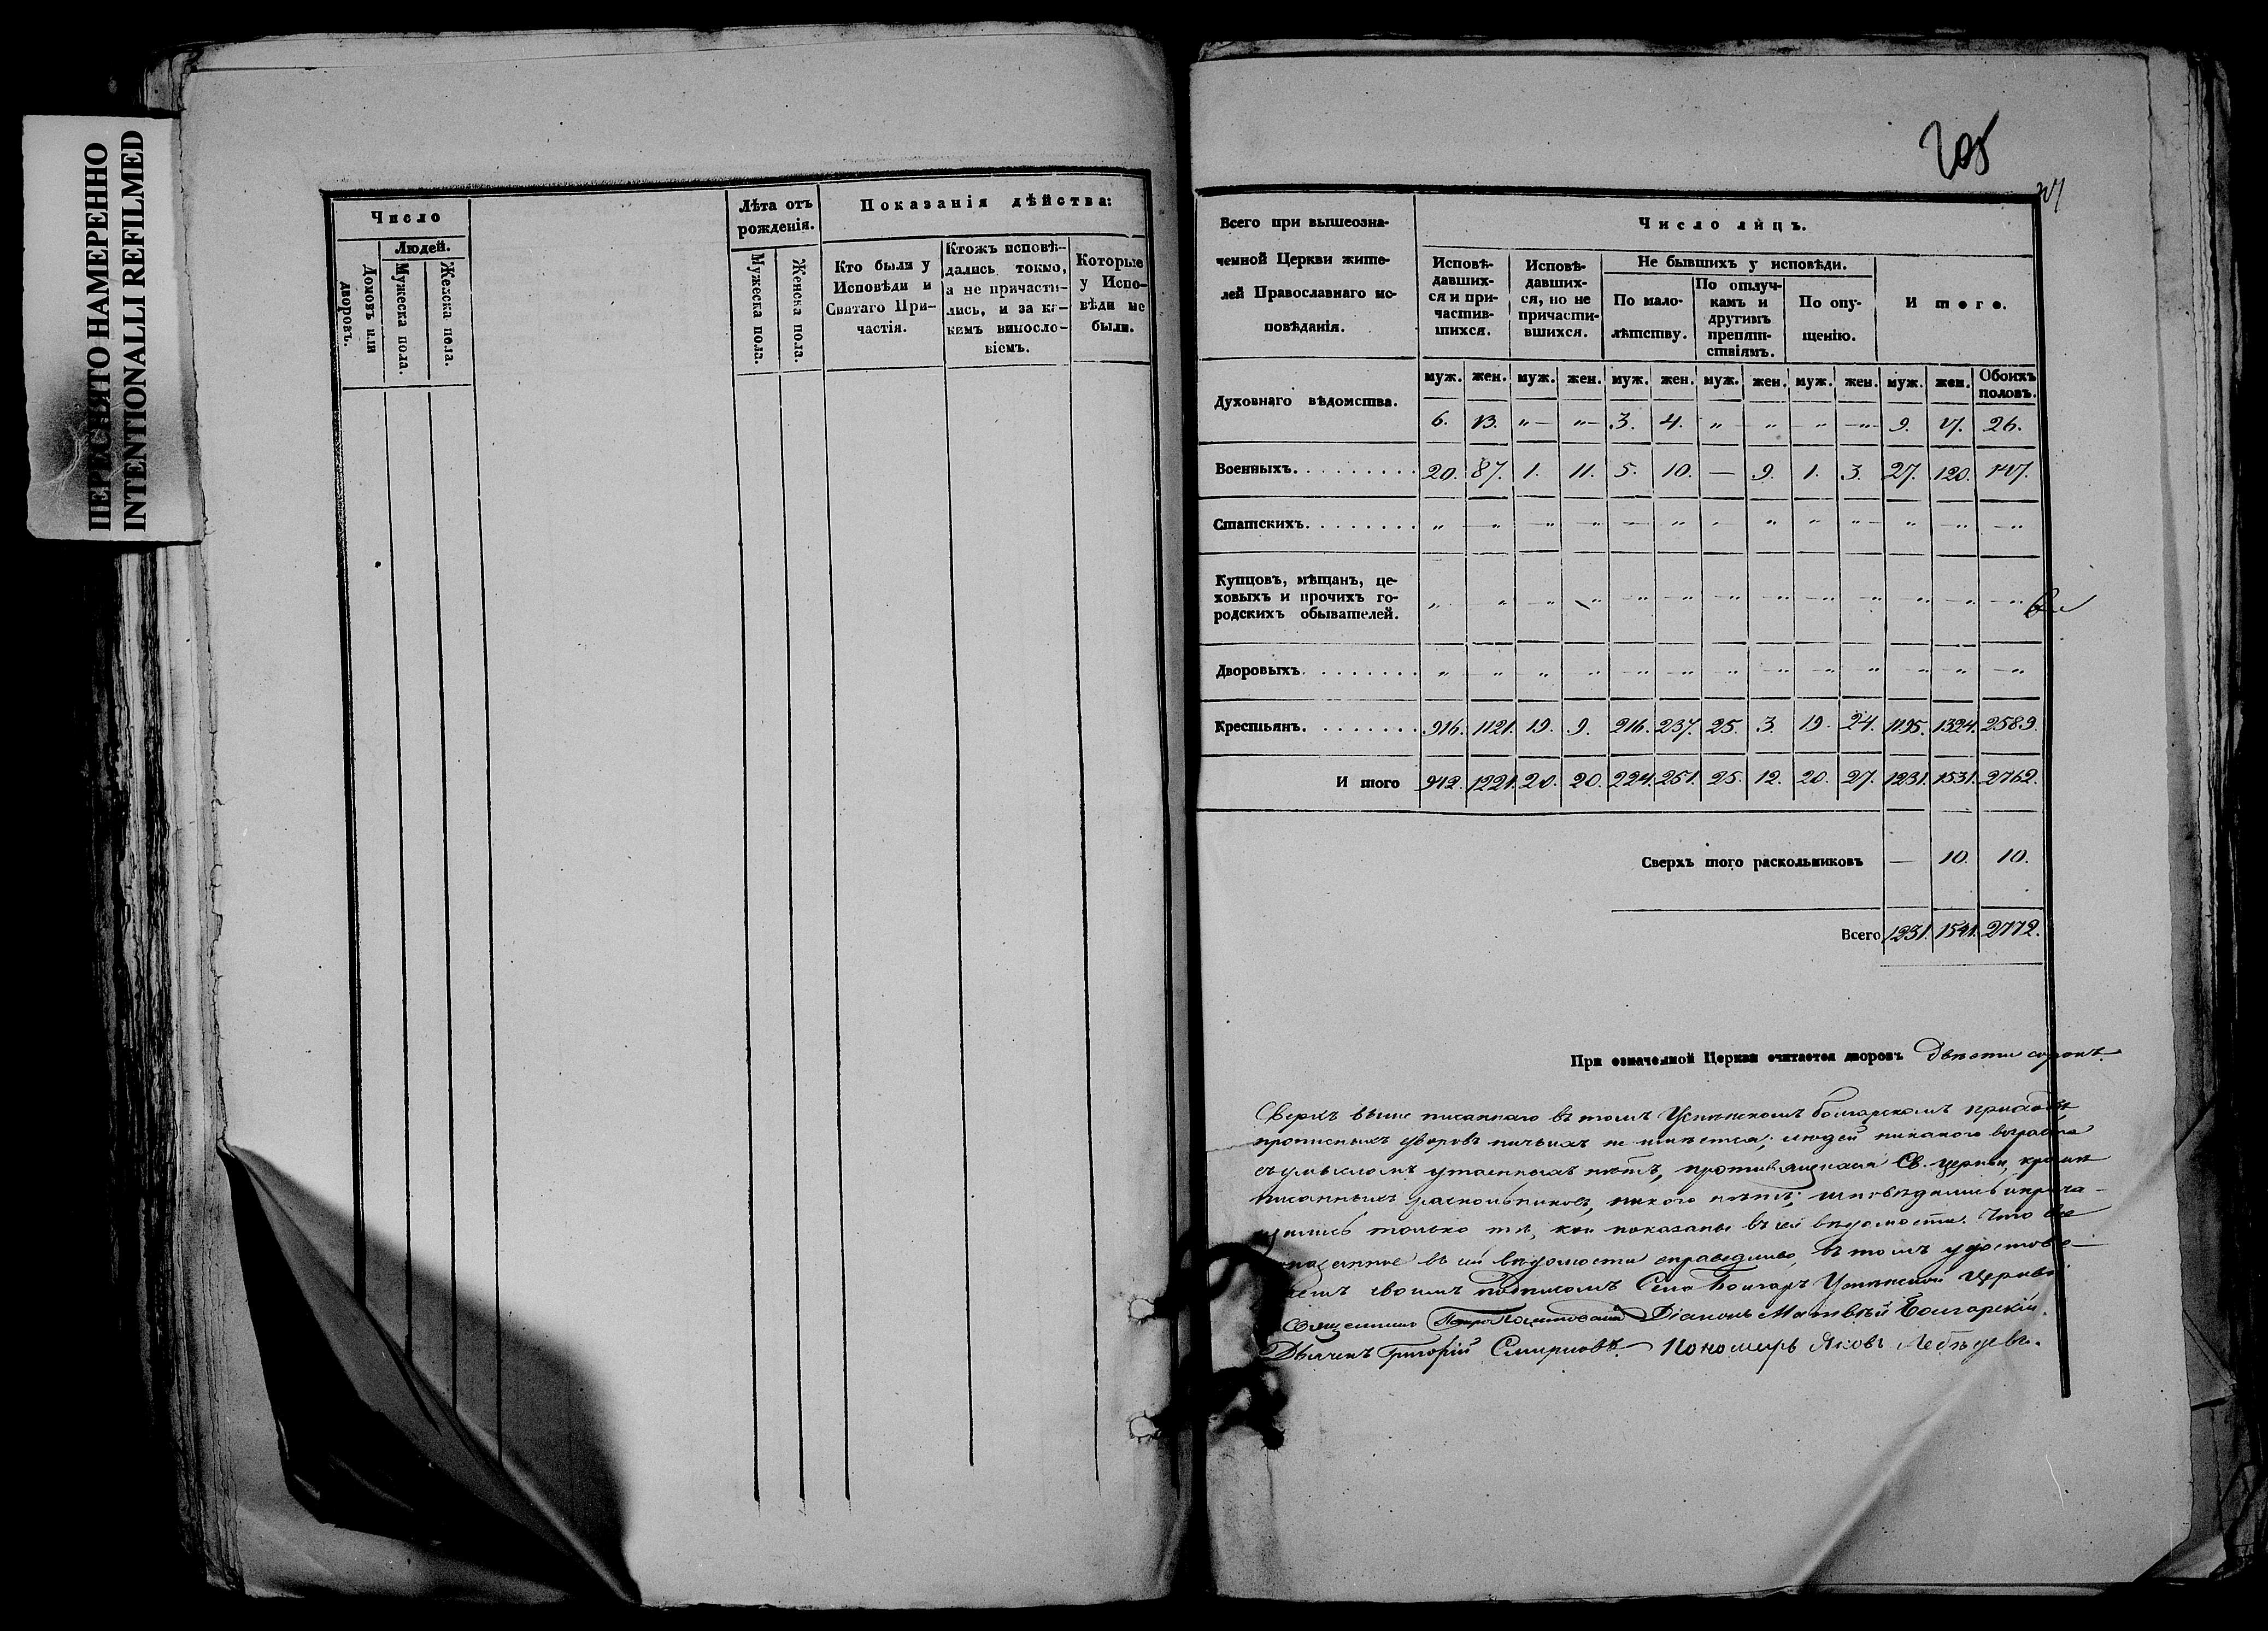 ПЕРЕСНЯТО НАМЕРЕННО
INTENTIONALLI REFILMED
Число
Домовъ или дворовъ.
Людей.
Мужеска пола.
Женска пола.
Лѣта отъ рожденія.
Мужеска пола.
Женска пола.
Показанія дѣйства:
Кто были у
Исповѣди и
Святаго При-
частія.
Ктожъ исповѣ-
дались токмо,
а не причасти-
лись, и за ка-
кимъ винословіемъ.
Которые
у Испо-
вѣди не
были.
205
Всего при вышеозна-
ченной Церкви жите-
лей Православнаго ис-
повѣданія.
Число лицъ.
Исповѣ-
давших-
ся и при-
частив-
шихся.
Исповѣ-
давших-
ся, но не
причасти-
вшихся.
Не бывшихъ у исповѣди.
По мало-
лѣтству.
По отлуч-
камъ и
другимъ
препят-
ствіямъ.
По опу-
щенію.
Итого.
муж. жен. муж. жен. муж. жен. муж. жен. муж. жен. муж. жен. Обоихъ половъ.
Духовнаго вѣдомства. 6. 13. " " 3. 4. " " " " 9. 17. 26.
Военныхъ. 20. 87. 1. 11. 5. 10. — 9. 1. 3. 27. 120. 147.
Статскихъ. " " " " " " " " " " " " "
Купцовъ, мѣщанъ, це-
ховыхъ и прочихъ го-
родскихъ обывателей. " " " " " " " " " " " " "
Дворовыхъ. " " " " " " " " " " " " "
Крестьянъ. 916. 1121. 19. 9. 216. 237. 25. 3. 19. 24. 1195. 1324. 2589.
Итого 942. 1221. 20. 20. 224. 251. 25. 12. 20. 27. 1231. 1531. 2762.
Сверхъ того раскольниковъ — 10. 10.
Всего 1231. 1541. 2772.
При означенной Церкви считается дворовъ Двѣсти сорокъ.
Сверхъ выше писаннаго въ томъ Успенскомъ Болгарскомъ приходѣ
прописныхъ дворовъ ничьихъ не имѣется; людей никакого возраста
съ умысломъ утаенныхъ нѣтъ, противящихся Св. церкви, кромѣ
писанныхъ раскольниковъ, никого нѣтъ; исповѣдались и прича-
щались только тѣ, кои показаны въ сей вѣдомости. Что все
показанное въ сей вѣдомости справедливо, въ томъ удостовѣ-
ряемъ своимъ подписомъ Села Болгаръ Успенской церкви
Священникъ Діаконъ Матвѣй Болгарскій.
Дьячекъ Григорій Смирновъ. Пономарь Яковъ Лебедевъ.